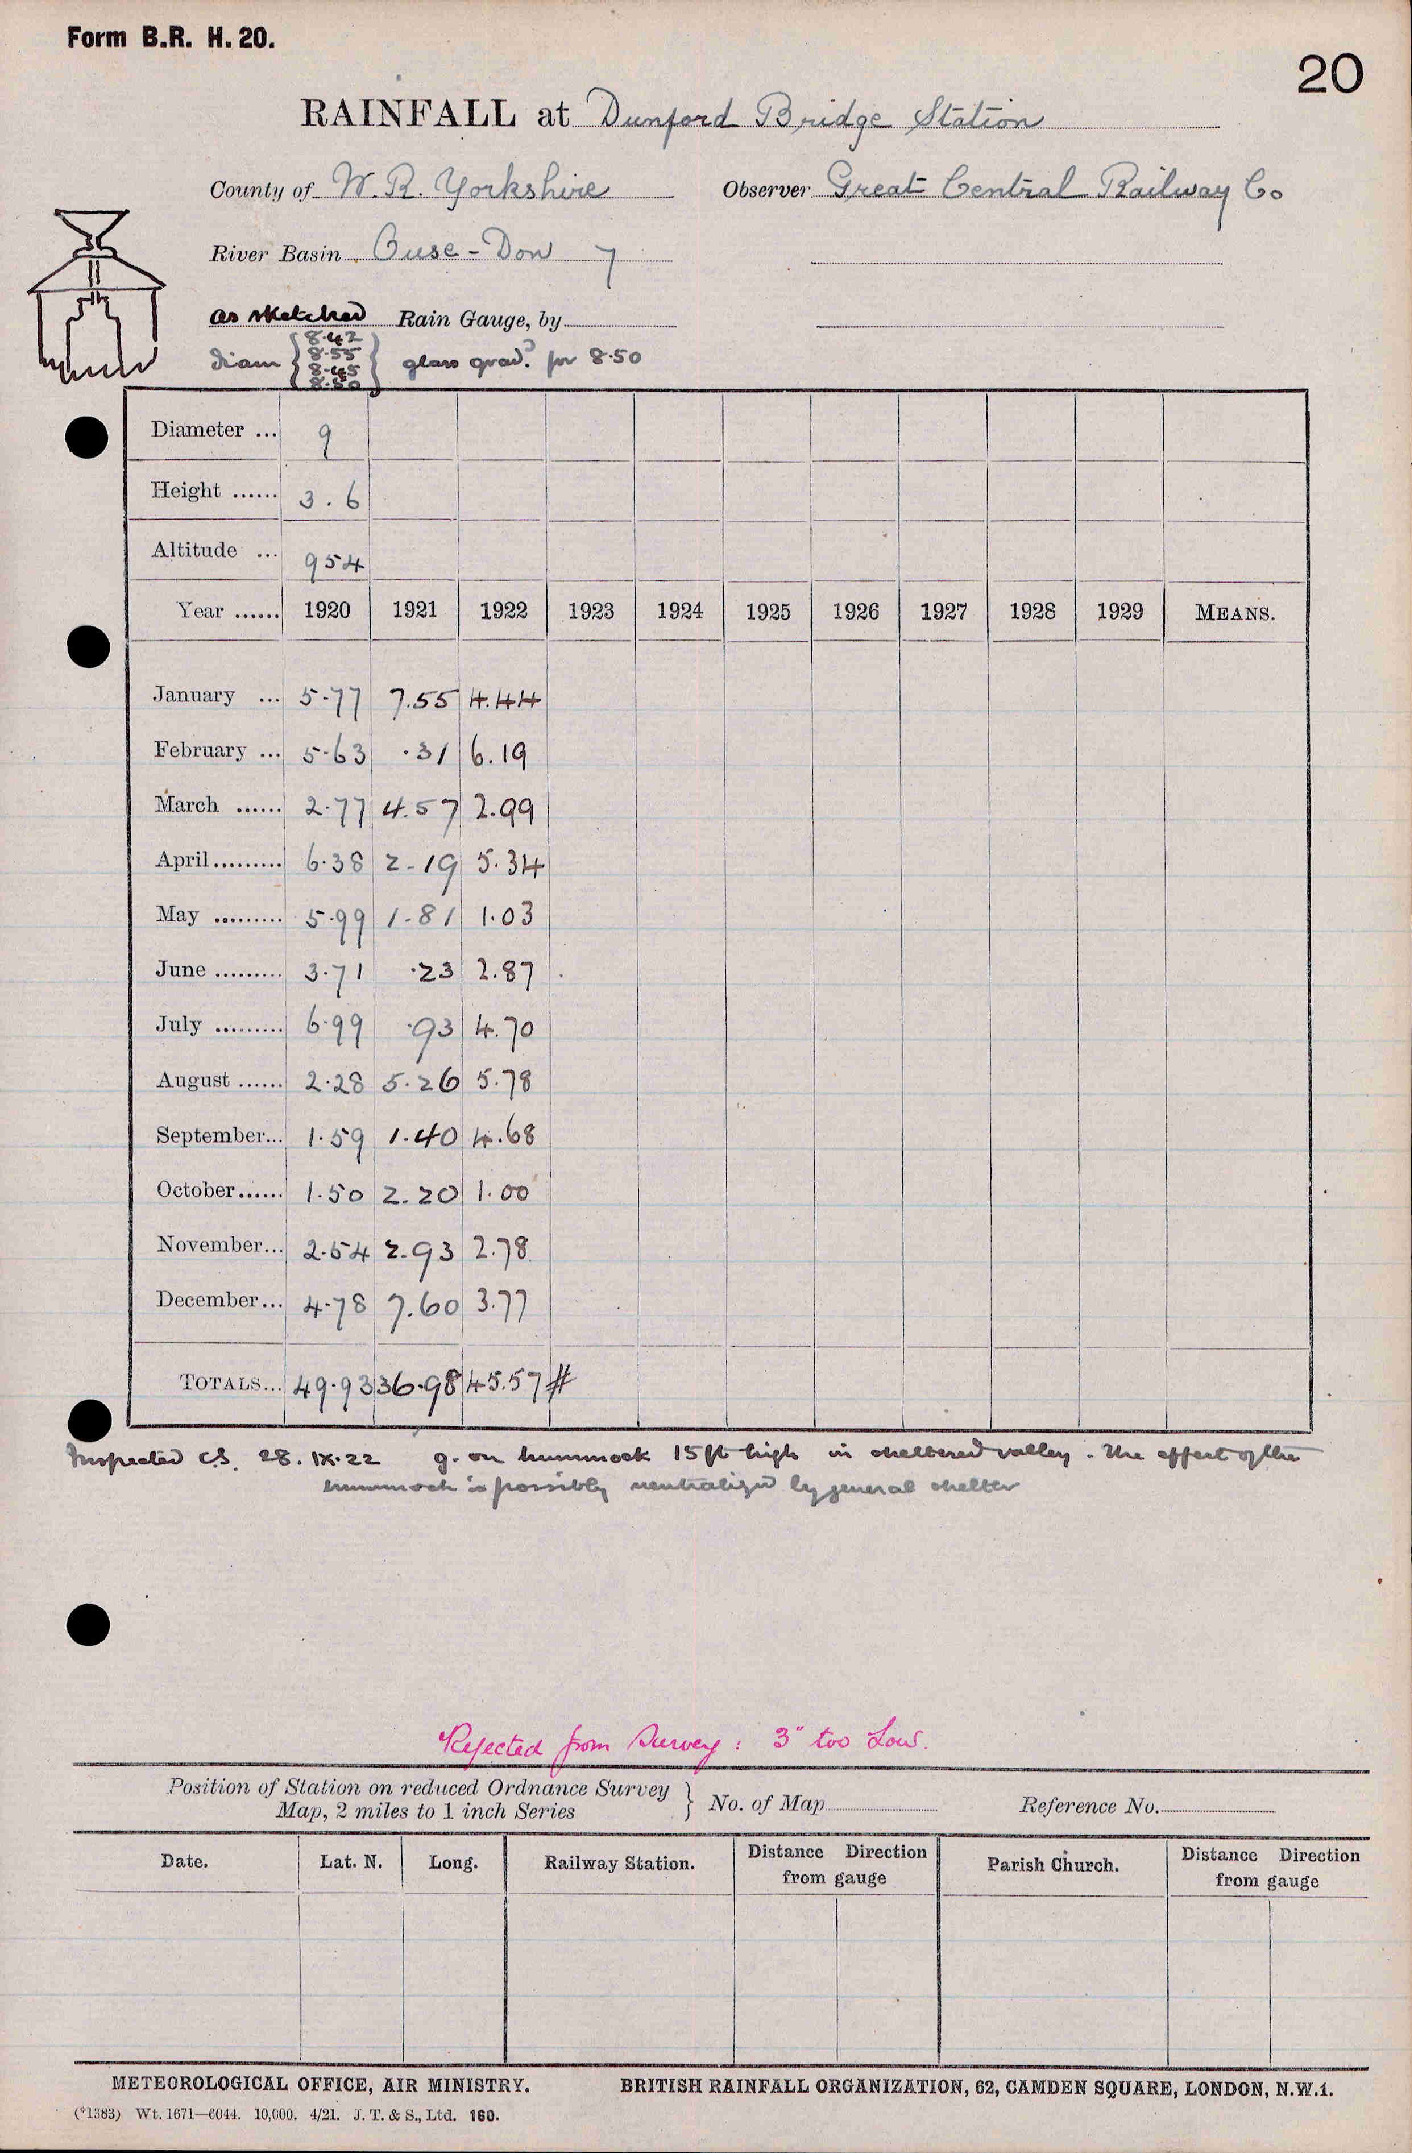 Form B.R. H. 20.
20
RAINFALL at Dunford Bridge Station
County of W. R. Yorkshire Observer Great Central Railway Co
River Basin Ouse - Don 7
as sketched Rain Gauge, by
diam { 8.42 8.55 8.45 8.50 } glass grad.d for 8.50
Diameter ... 9
Height ...... 3.6
Altitude ... 954
Year ...... 1920 1921 1922 1923 1924 1925 1926 1927 1928 1929 MEANS.
January ... 5.77 7.55 4.44
February ... 5.63 .31 6.19
March ...... 2.77 4.57 2.99
April ......... 6.38 2.19 5.34
May ......... 5.99 1.81 1.03
June ......... 3.71 .23 2.87
July ......... 6.99 .93 4.70
August ...... 2.28 5.26 5.78
September... 1.59 1.40 4.68
October...... 1.50 2.20 1.00
November... 2.54 2.93 2.78
December... 4.78 7.60 3.77
TOTALS... 49.93 36.98 45.57 #
Inspected C.S. 28.IX.22 g. on hummock 15ft high in sheltered valley. The effect of the
hummock is possibly neutralized by general shelter
Rejected from Survey: 3" too Low.
Position of Station on reduced Ordnance Survey
Map, 2 miles to 1 inch Series } No. of Map Reference No.
Date. Lat. N. Long. Railway Station. Distance Direction from gauge Parish Church. Distance Direction from gauge
METEOROLOGICAL OFFICE, AIR MINISTRY. BRITISH RAINFALL ORGANIZATION, 62, CAMDEN SQUARE, LONDON, N.W.1.
(*1383) Wt. 1671—6044. 10,000. 4/21. J. T. & S., Ltd. 160.